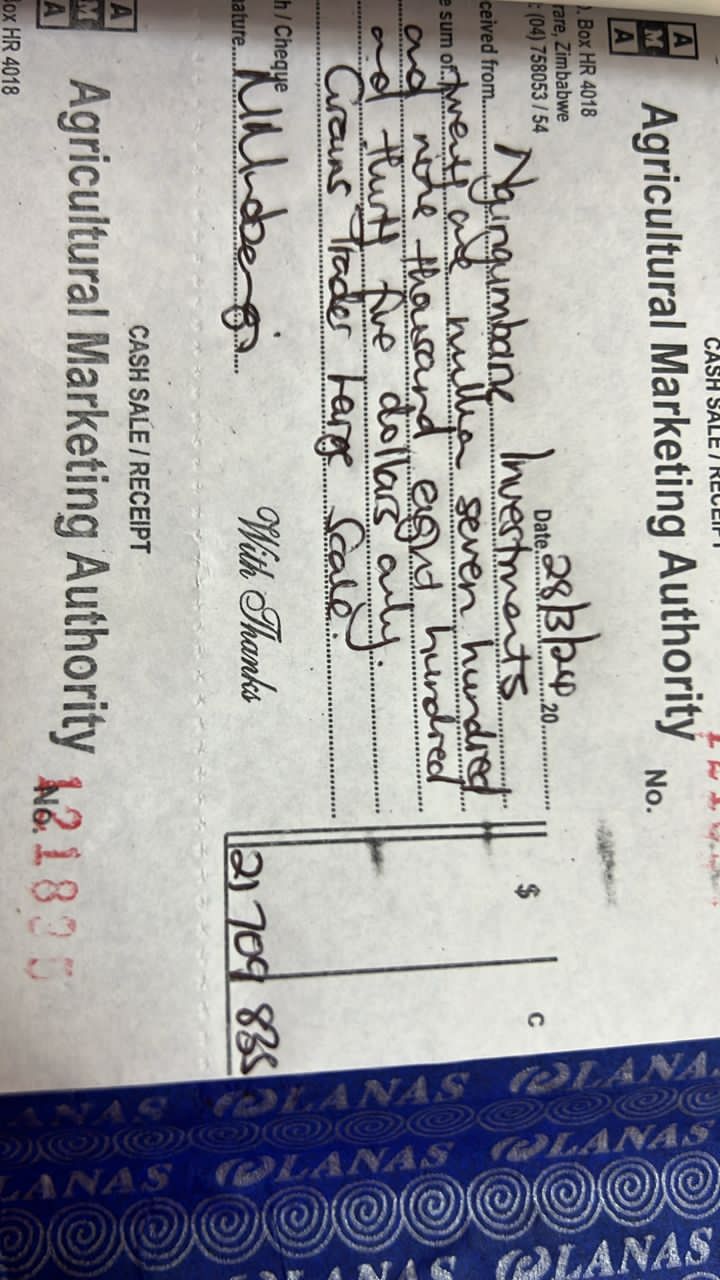 CASH SALE / RECEIPT
A
M
A
Agricultural Marketing Authority No.
Box HR 4018
Zimbabwe
(04) 758053 / 54
Date 28/3/24 20
$ C
ceived from Ngingimbane Investments
e sum of twenty one million seven hundred
and nine thousand eight hundred
and thirty five dollars only.
Grains Trader Large Scale.
h / Cheque
nature
With Thanks
21 709 835
CASH SALE / RECEIPT
A
M
A
Agricultural Marketing Authority No.
ox HR 4018
LANAS LANAS
LANAS LANAS LANAS
LANAS LANAS